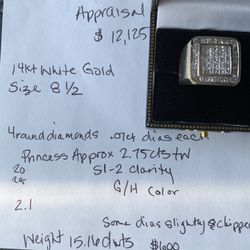 Appraisal
$ 12,125
14kt White Gold
Size 8 1/2
4 round diamonds .07ct dias each
Princess Approx 2.75cts tw
20 SI-2 clarity
G/H Color
2.1
Some dias slightly chipped
Weight 15.16 dwts $1600